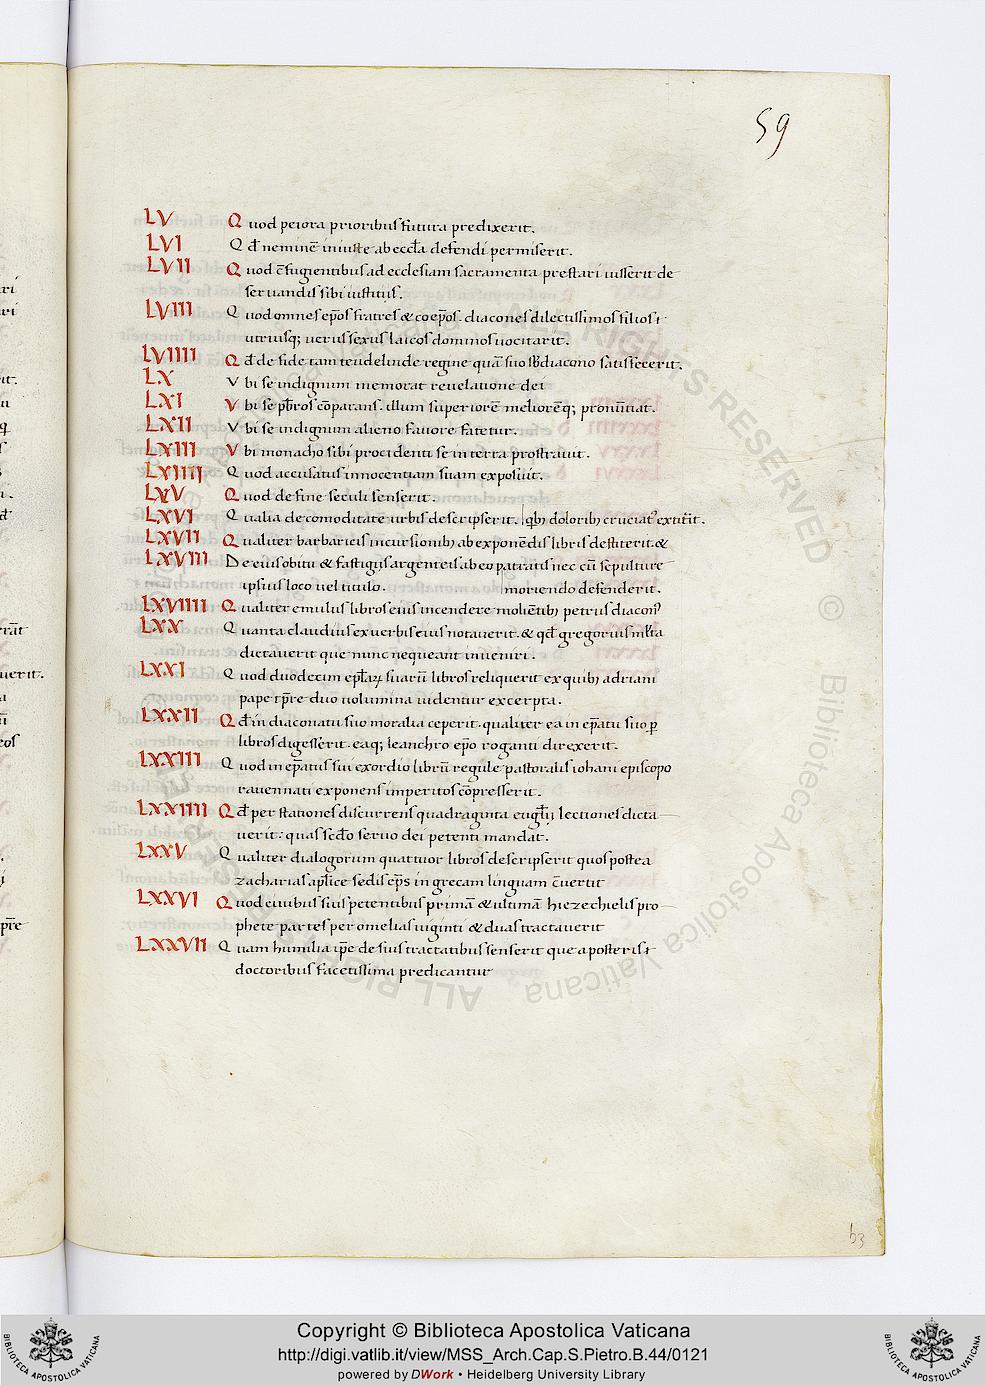 59
LV Quod peiora prioribus futura predixerit.
LVI Qd̄ neminē iniuste ab eccl̄a defendi permiserit.
LVII Quod c̄fugientibus ad ecclesiam sacramenta prestari iusserit de
seruandis sibi iustitiis.
LVIII Quod omnes ep̄os fratres & coep̄os. diacones dilectissimos filios
utriusq; uerus sexus laicos dominos uocitarit.
LVIIII Qd̄ de fide tam teudelinde regine quā suo sb̄diacono satisfecerit.
LX Vbi se indignum memorat reuelatione dei
LXI Vbi se pb̄ros cōparans. illum superiorē meliorēq; pronūtiat.
LXII Vbi se indignum alieno fauore fatetur.
LXIII Vbi monacho sibi procidenti se in terra prostrauit.
LXIIII Quod accusatus innocentiam suam exposuit.
LXV Quod de fine seculi senserit.
LXVI Qualia de comoditate urbis descripserit. qb; doloribꝫ cruciat' extiterit.
LXVII Qualiter barbaricis incursionibꝫ ab exponēdis libris destiterit. &
LXVIII De eius obitu & fastigiis argenteis ab eo patratis nec cū sepulture
ipsius loco uel titulo. moriendo defenderit.
LXVIIII Qualiter emulus libros eius incendere molientibꝫ petrus diacon'
LXX Quanta claudius ex uerbis eius notauerit. & qd̄ gregorius ml̄ta
dictauerit que nunc nequeant inueniri.
LXXI Quod duodecim epl̄aꝝ suarū libros reliquerit ex quibꝫ adriani
pape tp̄re duo uolumina uidentur excerpta.
LXXII Qd̄ in diaconatu suo moralia ceperit. qualiter ea in ep̄atu suo ꝑ
libros digesserit. eaq; leandro ep̄o roganti direxerit.
LXXIII Quod in ep̄atus sui exordio librū regule pastoralis iohani episcopo
rauennati exponens imperitos cōpresserit.
LXXIIII Qd̄ per stationes discurrens quadraginta eugl̄ii lectiones dicta
uerit: quas scd̄o seruo dei petenti mandat.
LXXV Qualiter dialogorum quattuor libros descripserit quos postea
zacharias apl̄ice sedis ep̄s in grecam linguam c̄uertit
LXXVI Quod ciuibus suis petentibus primā & ultimā hiezechielis pro
phete partes per omelias uiginti & duas tractauerit
LXXVII Quam humilia ip̄e de suis tractatibus senserit que a posteris
doctoribus facetissima predicantur
b3
ALL RIGHTS RESERVED © Biblioteca Apostolica Vaticana
Copyright © Biblioteca Apostolica Vaticana
http://digi.vatlib.it/view/MSS_Arch.Cap.S.Pietro.B.44/0121
powered by DWork • Heidelberg University Library
BIBLIOTECA APOSTOLICA VATICANA
BIBLIOTECA APOSTOLICA VATICANA